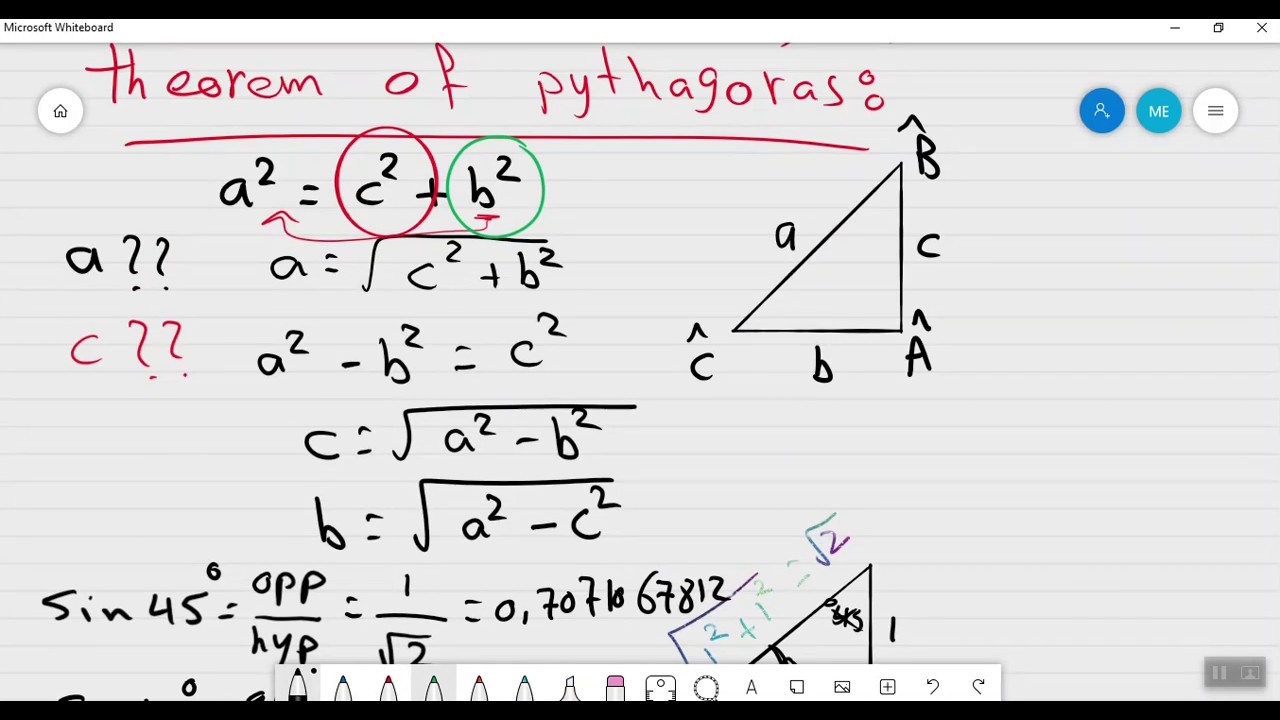 Microsoft Whiteboard
theorem of pythagoras:
ME
a² = c² + b²
a ?? a = √c² + b²
c ?? a² - b² = c²
c = √a² - b²
b = √a² - c²
B̂
a
c
Ĉ
b
Â
sin 45° = opp/hyp = 1/√2 = 0,7071067812
1² + 1² = √2
1
A